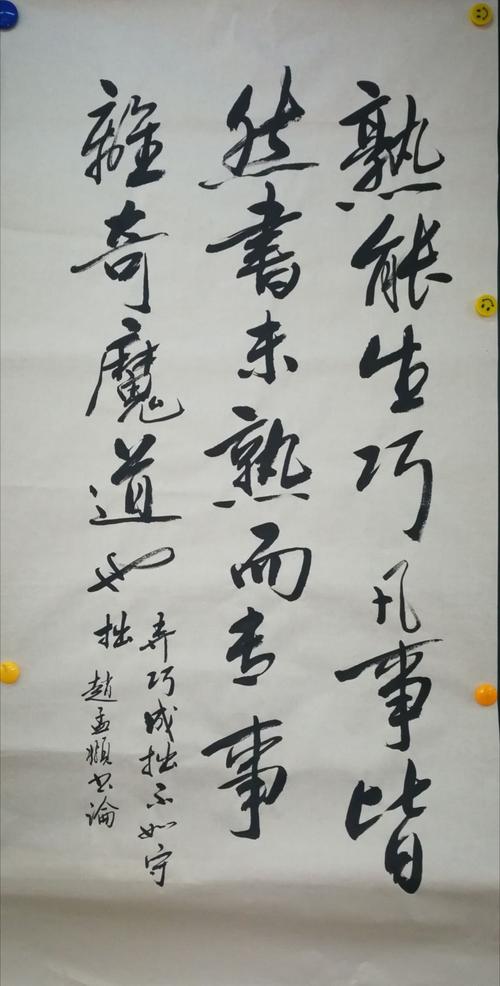 熟能生巧凡事皆
然書未熟而专事
離奇魔道也
弄巧成拙不如守
拙 趙孟頫书論